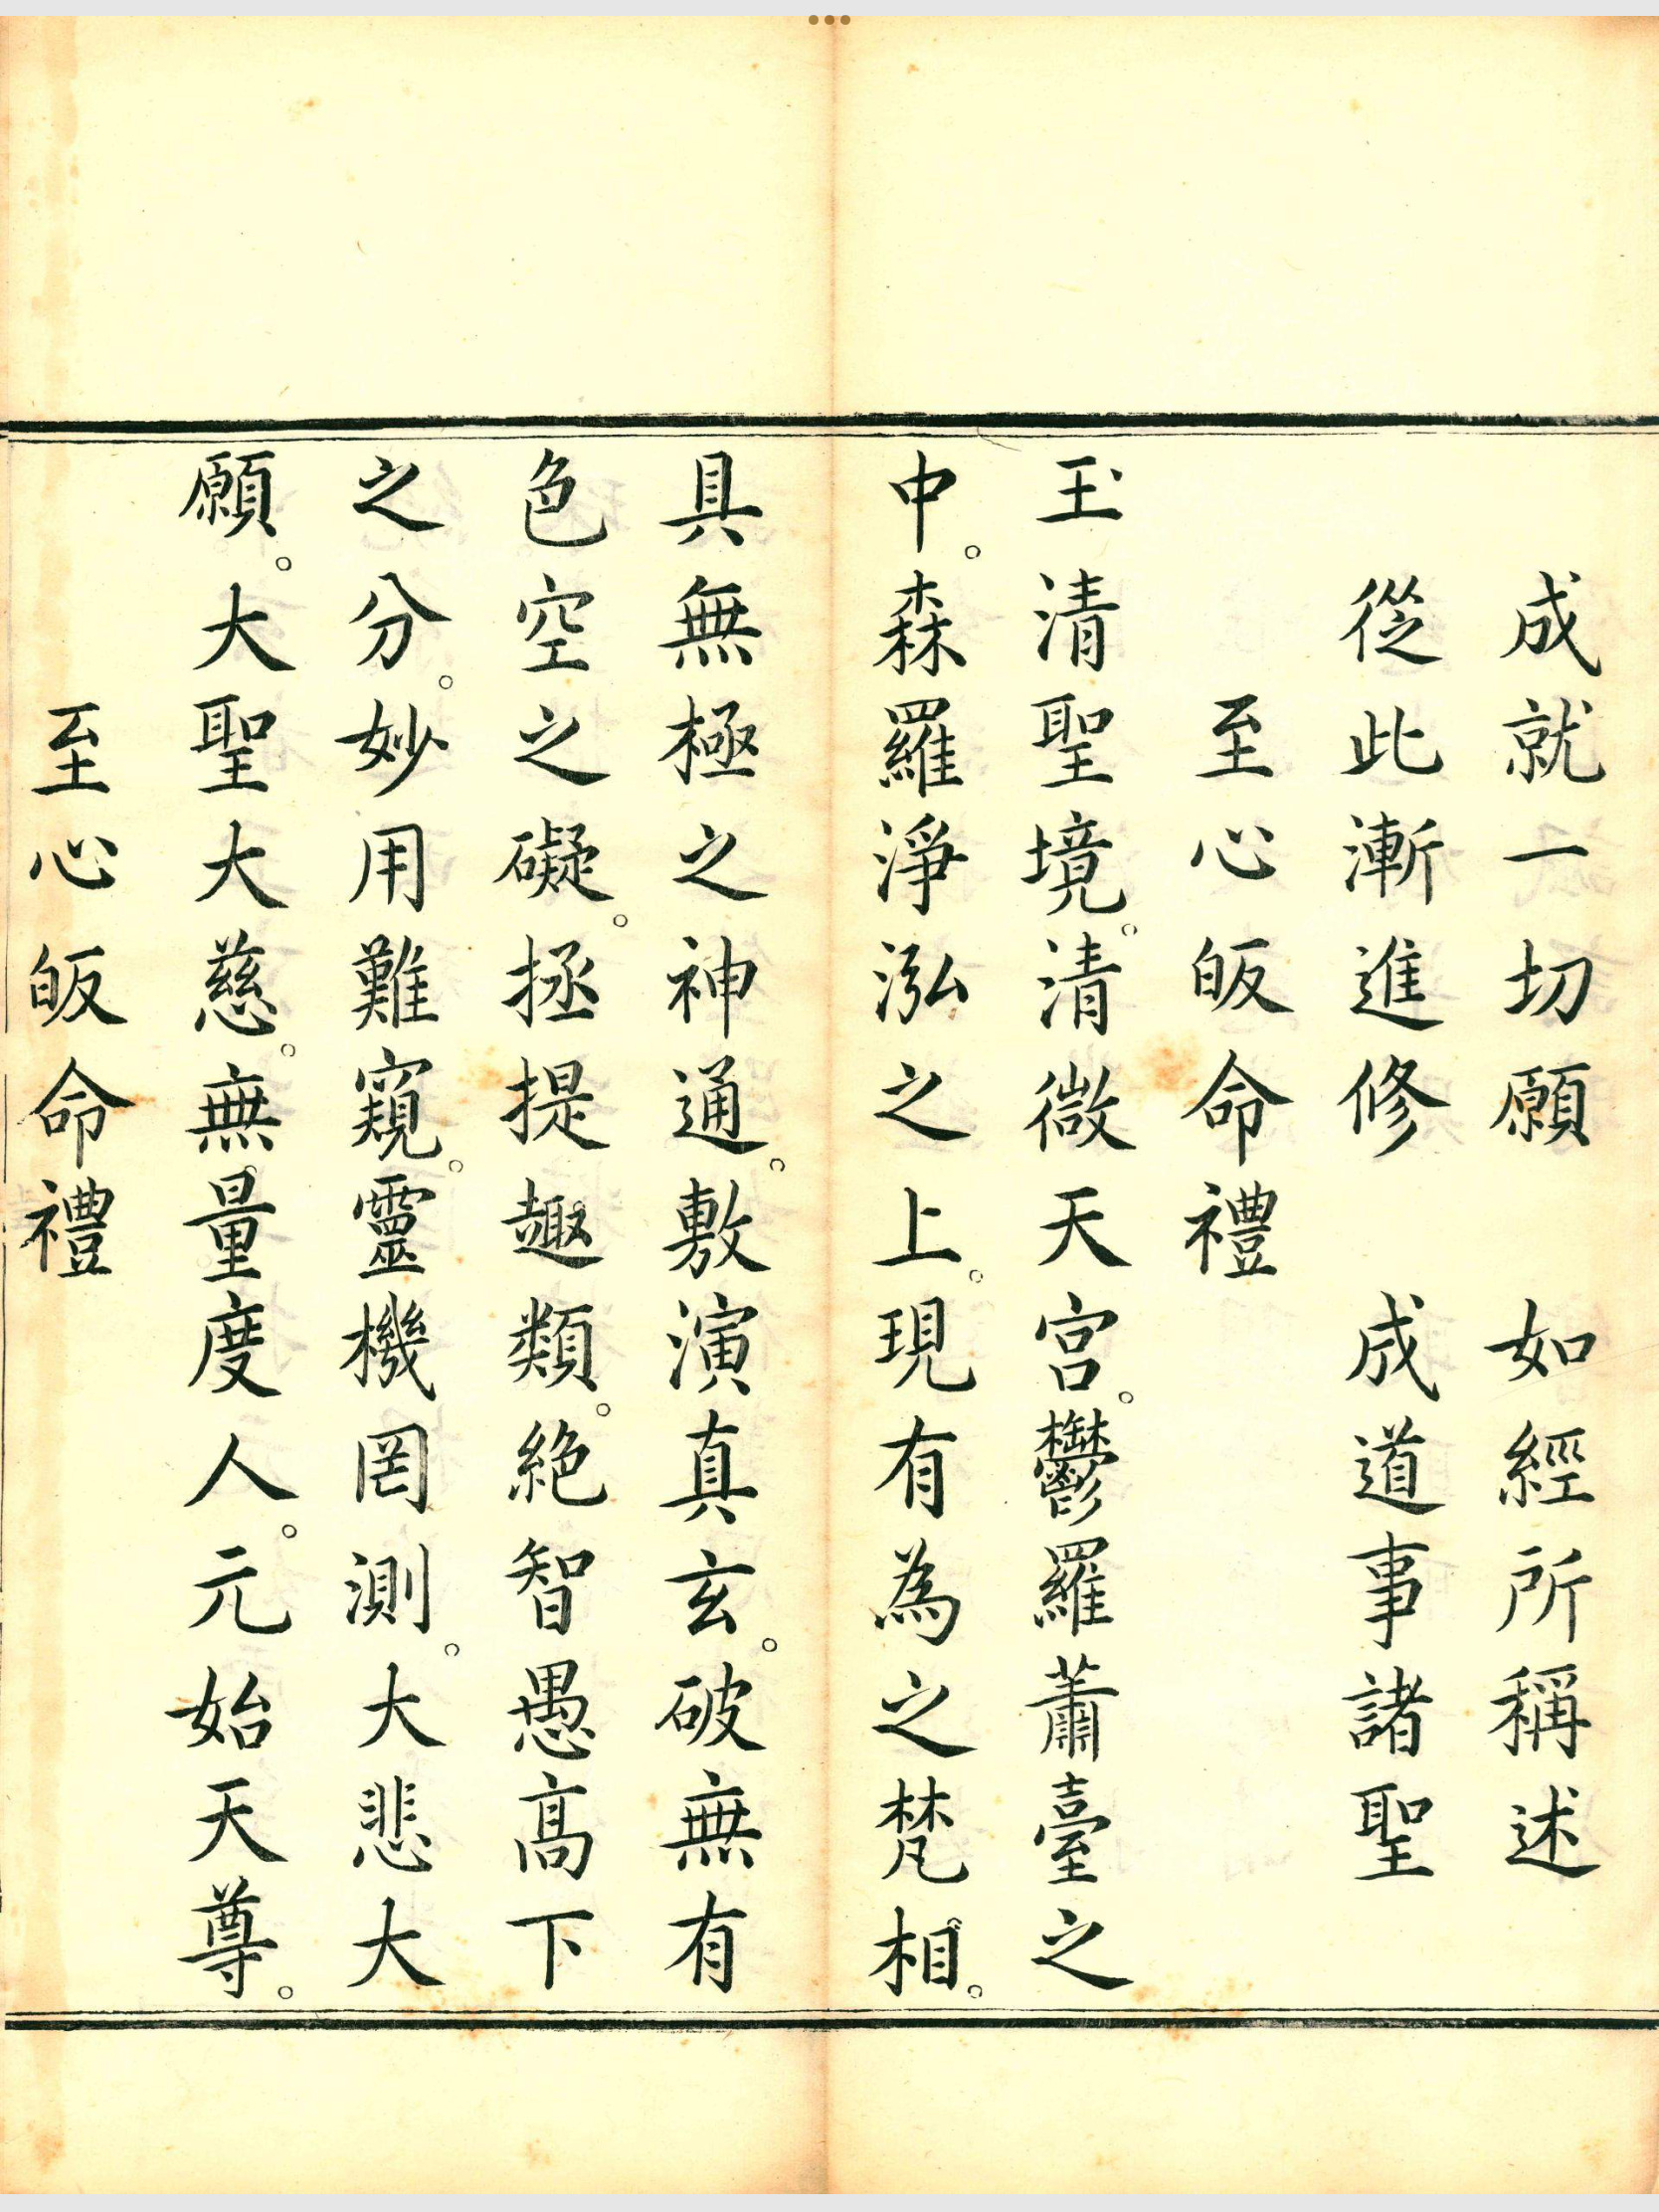 成就一切願　如經所稱述
從此漸進修　成道事諸聖
至心皈命禮
玉清聖境。清微天宮。鬱羅蕭臺之
中。森羅淨泓之上。現有為之梵相。
具無極之神通。敷演真玄。破無有
色空之礙。拯提趣類。絕智愚高下
之分。妙用難窺。靈機罔測。大悲大
願。大聖大慈。無量度人。元始天尊。
至心皈命禮